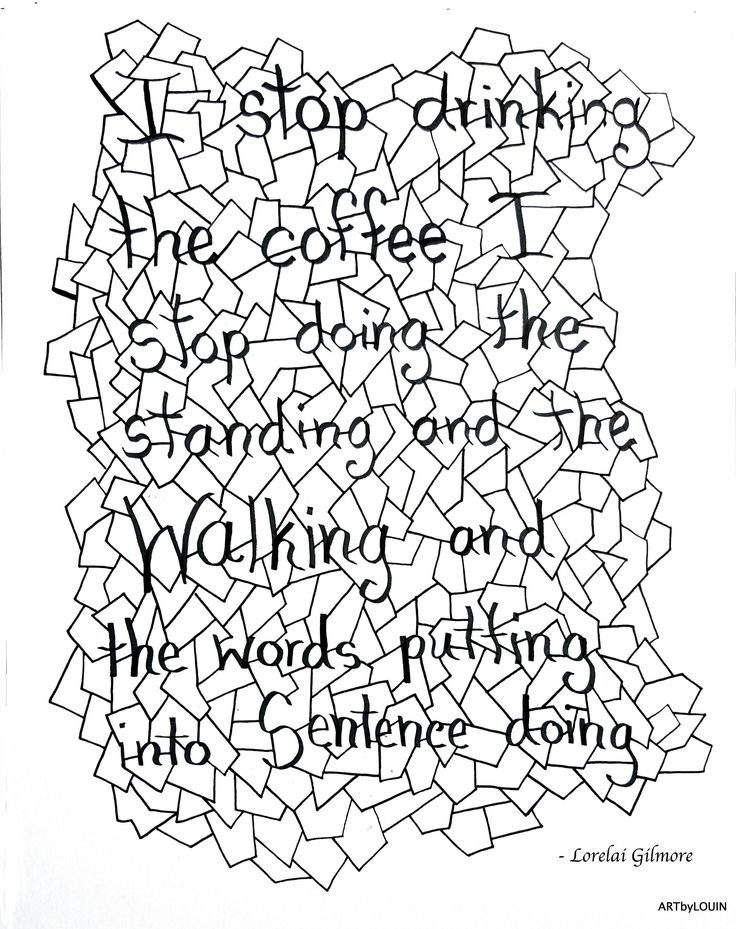 I stop drinking
the coffee I
stop doing the
standing and the
Walking and
the words putting
into Sentence doing
- Lorelai Gilmore
ARTbyLOUIN